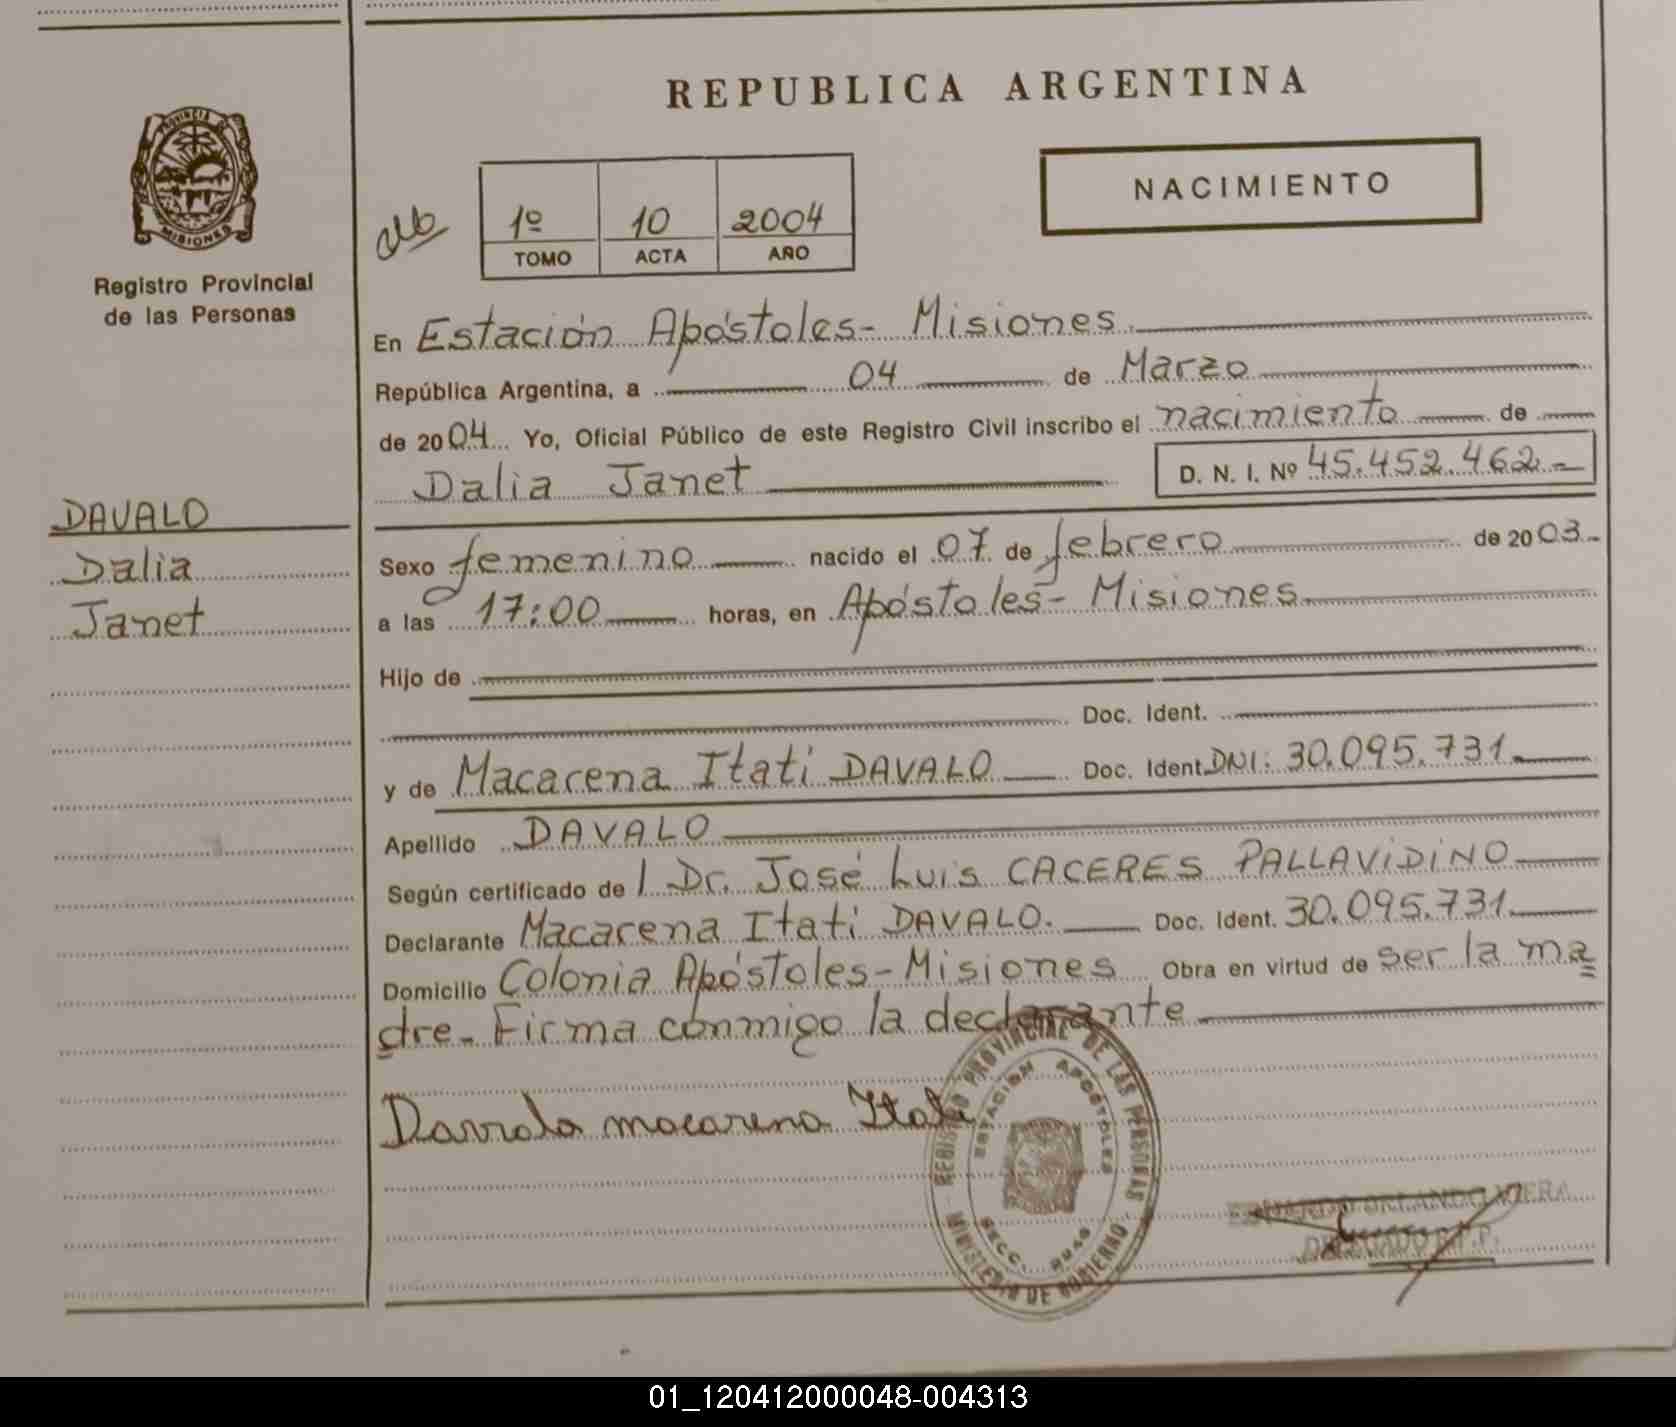 REPUBLICA ARGENTINA
PROVINCIA DE
MISIONES
Registro Provincial
de las Personas
NACIMIENTO
1º 10 2004
TOMO ACTA AÑO
En Estación Apóstoles- Misiones.
República Argentina, a 04 de Marzo
de 2004 Yo, Oficial Público de este Registro Civil inscribo el nacimiento de
Dalia Janet D. N. I. Nº 45.452.462-
DAVALO
Dalia
Janet
Sexo femenino nacido el 07 de febrero de 2003-
a las 17:00 horas, en Apóstoles- Misiones
Hijo de
Doc. Ident.
y de Macarena Itati DAVALO Doc. Ident. DNI: 30.095.731
Apellido DAVALO
Según certificado de l Dr. José Luis CACERES PALLAVIDINO
Declarante Macarena Itati DAVALO. Doc. Ident. 30.095.731
Domicilio Colonia Apóstoles-Misiones Obra en virtud de ser la ma
dre- Firma conmigo la declarante
Davalo macarena Itati
REGISTRO PROVINCIAL DE LAS PERSONAS
ESTACION APOSTOLES
SECC.
MINISTERIO DE GOBIERNO
ORLANDO VIERA
DELEGADO R.P.P.
01_120412000048-004313